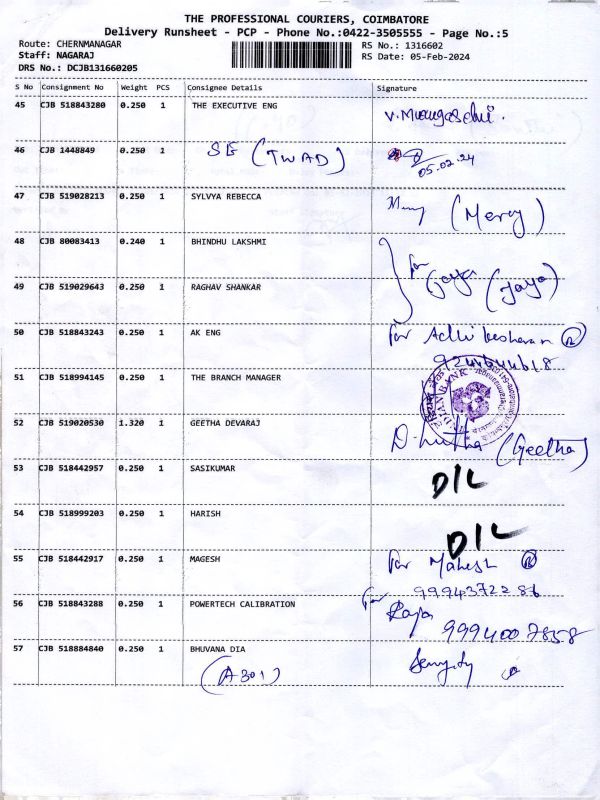 THE PROFESSIONAL COURIERS, COIMBATORE
Delivery Runsheet - PCP - Phone No.:0422-3505555 - Page No.:5
Route: CHERNMANAGAR
Staff: NAGARAJ
DRS No.: DCJB131660205
RS No.: 1316602
RS Date: 05-Feb-2024
S No Consignment No Weight PCS Consignee Details Signature
45 CJB 518843280 0.250 1 THE EXECUTIVE ENG
46 CJB 1448849 0.250 1 SE (TWAD) 05.02.24
47 CJB 519028213 0.250 1 SYLVYA REBECCA (Mercy)
48 CJB 80083413 0.240 1 BHINDHU LAKSHMI for
49 CJB 519029643 0.250 1 RAGHAV SHANKAR Jaya (Jaya)
50 CJB 518843243 0.250 1 AK ENG For
51 CJB 518994145 0.250 1 THE BRANCH MANAGER
52 CJB 519020530 1.320 1 GEETHA DEVARAJ (Geetha)
53 CJB 518442957 0.250 1 SASIKUMAR D/L
54 CJB 518999203 0.250 1 HARISH D/L
55 CJB 518442917 0.250 1 MAGESH For Mahesh
9994372286
56 CJB 518843288 0.250 1 POWERTECH CALIBRATION for Raja
9994007858
57 CJB 518884840 0.250 1 BHUVANA DIA
(A301)